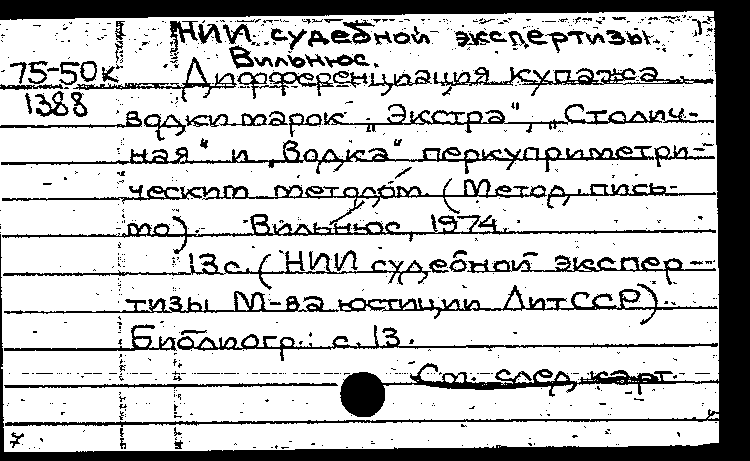 НИИ судебной экспертизы.
Вильнюс.
75-50к
1388
Дифференциация купажа
водки марок „Экстра“, „Столич-
ная“ и „Водка“ перкуприметри-
ческим методом. (Метод. пись-
мо). Вильнюс, 1974.
13с. (НИИ судебной экспер-
тизы М-ва юстиции ЛитССР).
Библиогр.: с. 13.
См. след. карт.
7